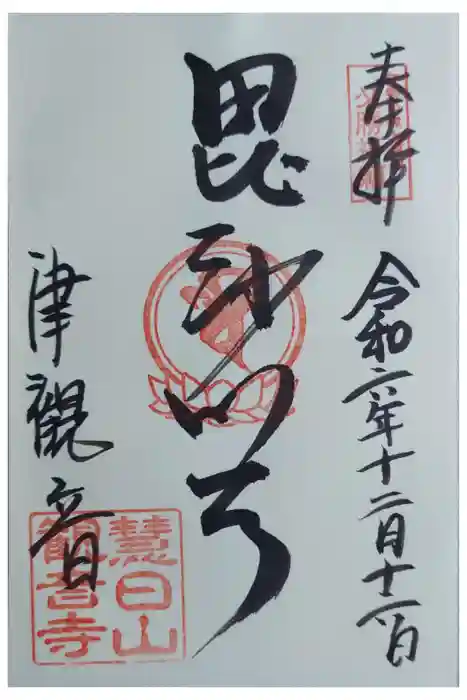 奉拝
令和六年十二月十六日
毘沙門
津観音
慧日山
観音寺